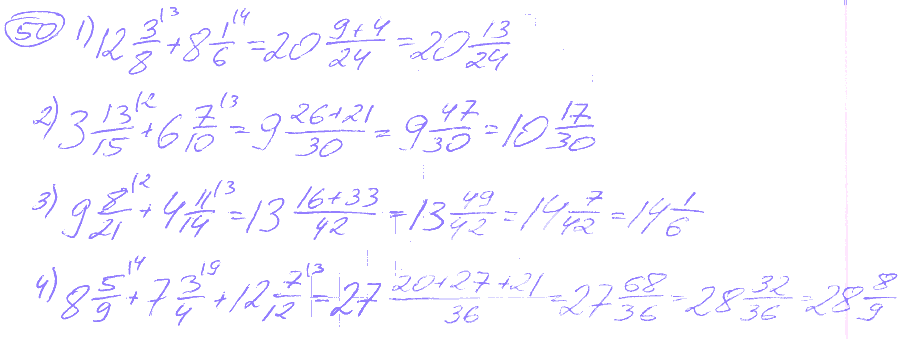 50 1) 12 3/8 |3 + 8 1/6 |4 = 20 (9+4)/24 = 20 13/24
2) 3 13/15 |2 + 6 7/10 |3 = 9 (26+21)/30 = 9 47/30 = 10 17/30
3) 9 8/21 |2 + 4 11/14 |3 = 13 (16+33)/42 = 13 49/42 = 14 7/42 = 14 1/6
4) 8 5/9 |4 + 7 3/4 |9 + 12 7/12 |3 = 27 (20+27+21)/36 = 27 68/36 = 28 32/36 = 28 8/9